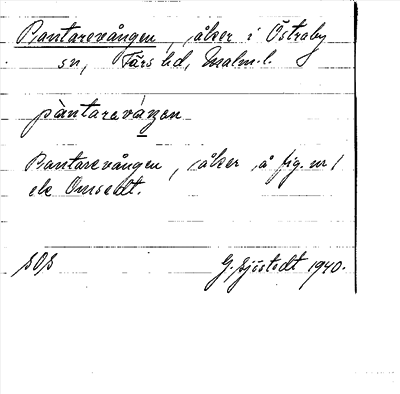 Bantarevången, åker i Östraby
sn, Färs hd, Malm. l.
pàntarevánen
Bantarevången, åker å fig. nr 1
ele Omsedt.
SOS G. Sjöstedt 1940.